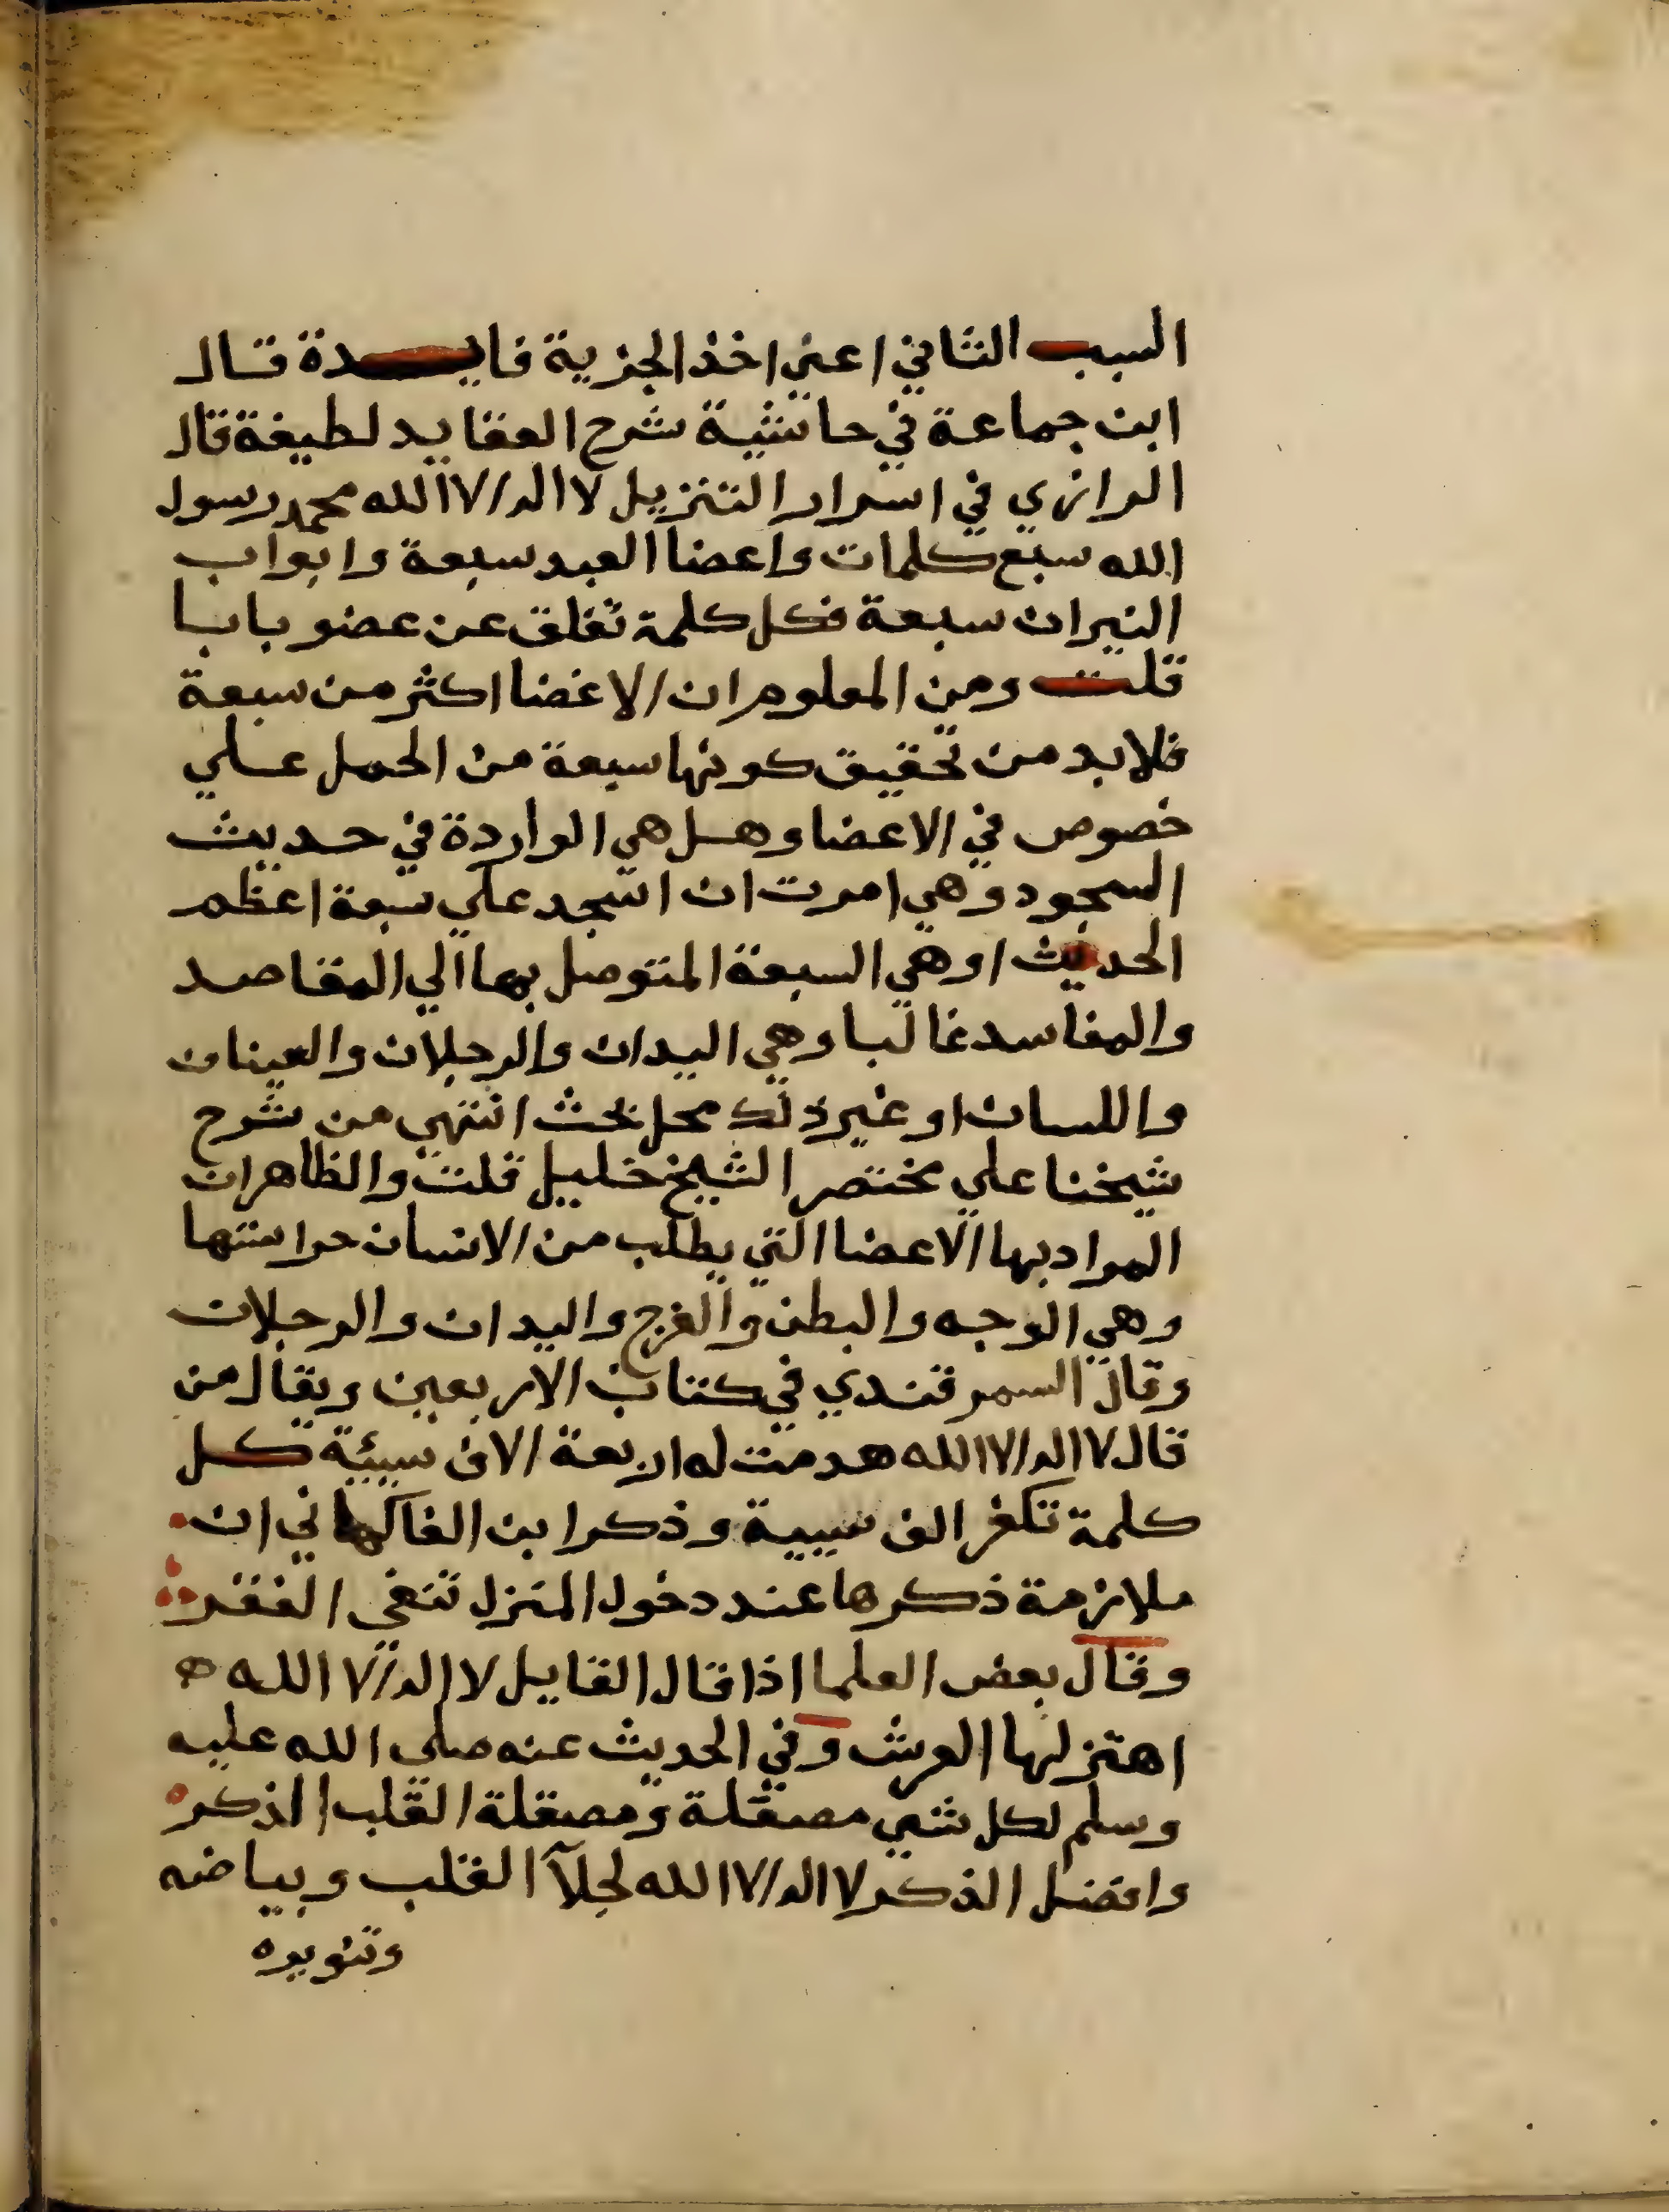 السبب الثاني اعني اخذ الجزية فايدة قال
ابن جماعة في حاشية شرح العقايد لطيفة قال
الرازي في اسرار التنزيل لا اله الا الله محمد رسول
الله سبع كلمات واعضا العبد سبعة وابواب
النيران سبعة فكل كلمة تغلق عن عضو بابا
قلت ومن المعلوم ان الاعضا اكثر من سبعة
فلابد من تحقيق كونها سبعة من الحمل علي
خصوص في الاعضا وهل هي الواردة في حديث
السجود وهي امرت ان اسجد علي سبعة اعظم
الحديث او هي السبعة المتوصل بها الي المقاصد
والمفاسد غالبا وهي اليدان والرجلان والعينان
واللسان او غير ذلك محل بحث انتهي من شرح
شيخنا علي مختصر الشيخ خليل قلت والظاهر ان
المراد بها الاعضا التي يطلب من الانسان حراستها
وهي الوجه والبطن والفرج واليدان والرجلان
وقال السمرقندي في كتاب الاربعين ويقال من
قال لا اله الا الله هدمت له اربعة الاف سيئة كل
كلمة تكفر الف سيية وذكر ابن الفاكهاني ان
ملازمة ذكرها عند دخول المنزل تنفي الفقر
وقال بعض العلما اذا قال القايل لا اله الا الله ه
اهتز لها العرش وفي الحديث عنه صلي الله عليه
وسلم لكل شي مصقلة ومصقلة القلب الذكر
وافضل الذكر لا اله الا الله لجلآ القلب وبياضه
وتنويره